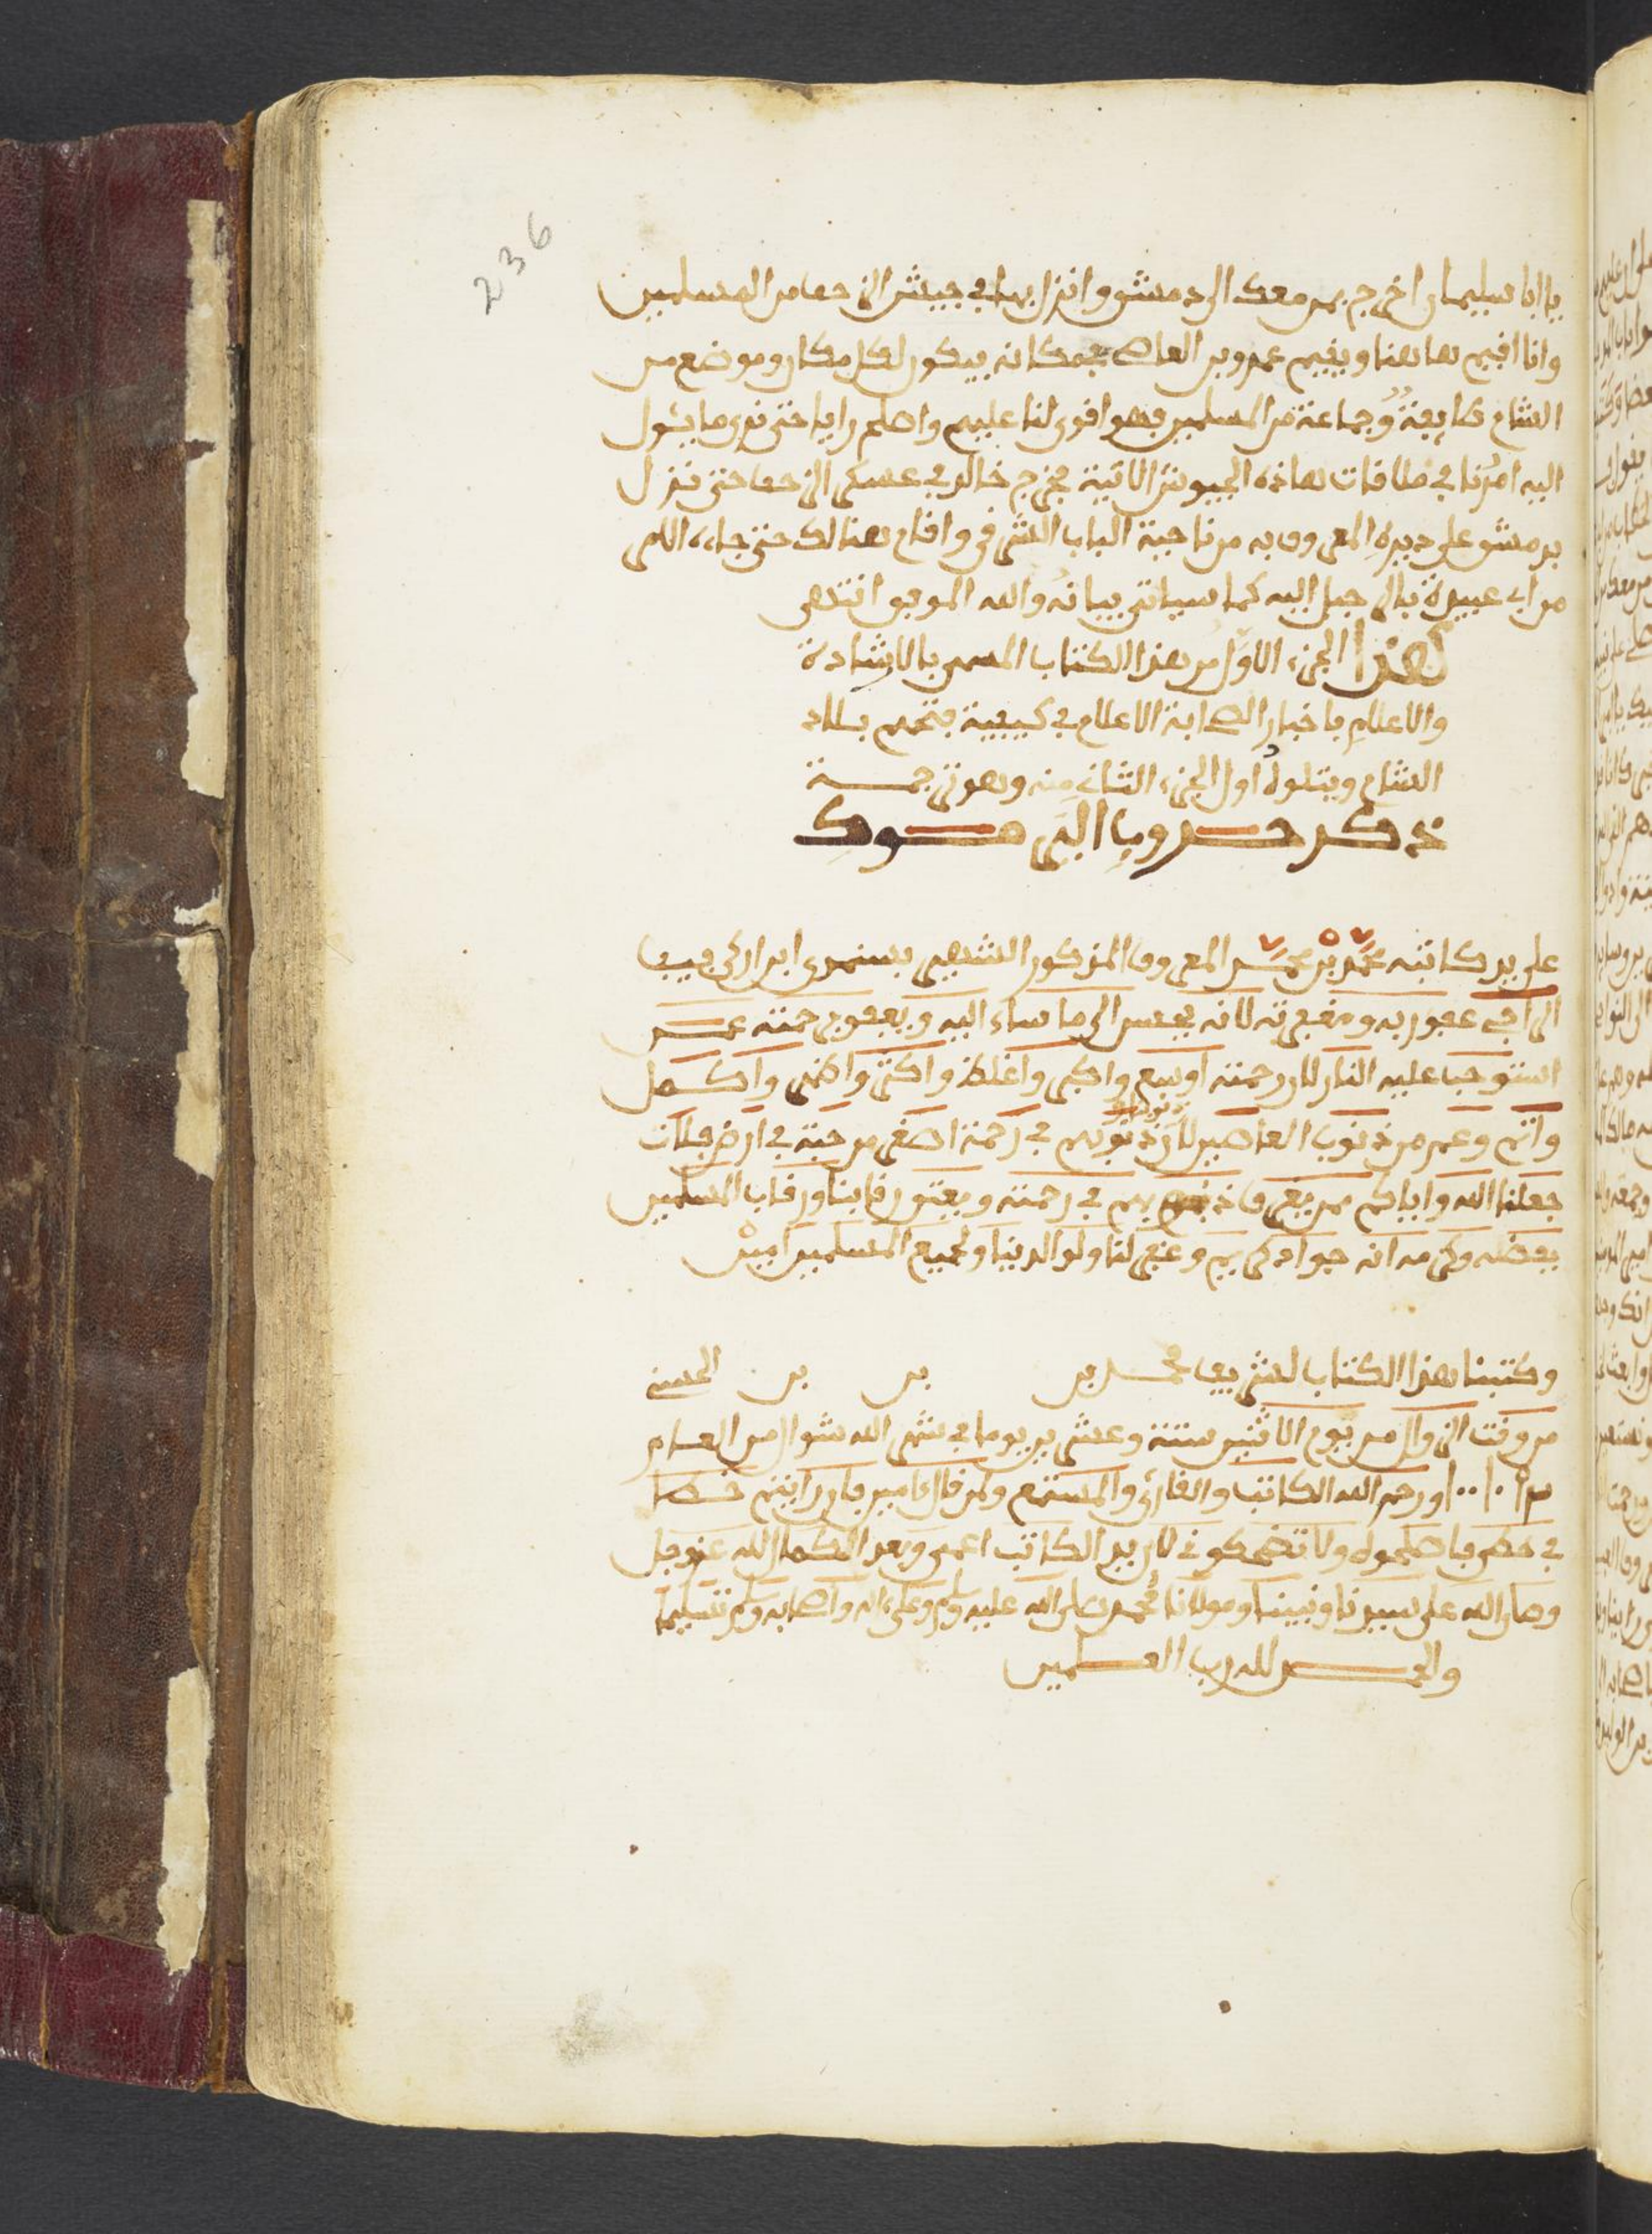 236
يا ابا سليمان اخرج بمن معك الى دمشق وانزل بها في جيش الزحف من المسلمين
وانا اقيم هاهنا ويقيم عمرو بن العاص بمكانه فيكون لكل مكان وموضع من
الشام طايفة وجماعة من المسلمين فهو اقوى لنا عليهم واصلح رايا حتى نرى ما يئول
اليه امرنا في ملاقات هاذه الجيوش الاتية فخرج خالد في عسكر الزحف حتى نزل
بدمشق على ديره المعروف به من ناحية الباب الشرقي واقام هنالك حتى جاءه الامر
من ابي عبيدة بالرجيل اليه كما سياتي بيانه والله الموفق انتهى
هذا الجزء الاول من هذا الكتاب المسمى بالاشادة
والاعلام باخبار الصحابة الاعلام في كيفية فتحهم بلاد
الشام ويتلوه اول الجزء الثاني منه وهو ترجمة
ذكر حروب اليرموك
على يد كاتبه محمد بن محمد المعروف المذكور الشهير
الراجي عفو ربه ومغفرته لانه يحسن الى ما ساء اليه ويعفو برحمته عمن
استوجب عليه النار لان رحمته اوسع واكبر واغلظ واكثر واظهر واكمل
واتم وعم من ذنوب العاصين لان ذنوبهم في رحمة اصغر من حبة في ارض فلات
جعلنا الله واياكم ممن يغرق ذنوبهم في رحمته ويعتق رقابنا ورقاب المسلمين
بفضله وكرمه انه جواد كريم وغفر لنا ولوالدينا ولجميع المسلمين امين
وكتبنا هذا الكتاب لشريف محمد بن بن بن الحسني
من وقت الزوال من يوم الاثنين ستة وعشرين يوما في شهر الله شوال من العام
ورحم الله الكاتب والقارئ والمستمع ولمن قال ءامين فان رايتم خطا
في خطي فاصلحوه ولا تضحكوني لان يد الكاتب اعمى وبعد الكمال لله عز وجل
وصلى الله على سيدنا ونبينا ومولانا محمد صلى الله عليه وسلم وعلى ءاله واصحابه وسلم تسليما
والحمد لله رب العلمين